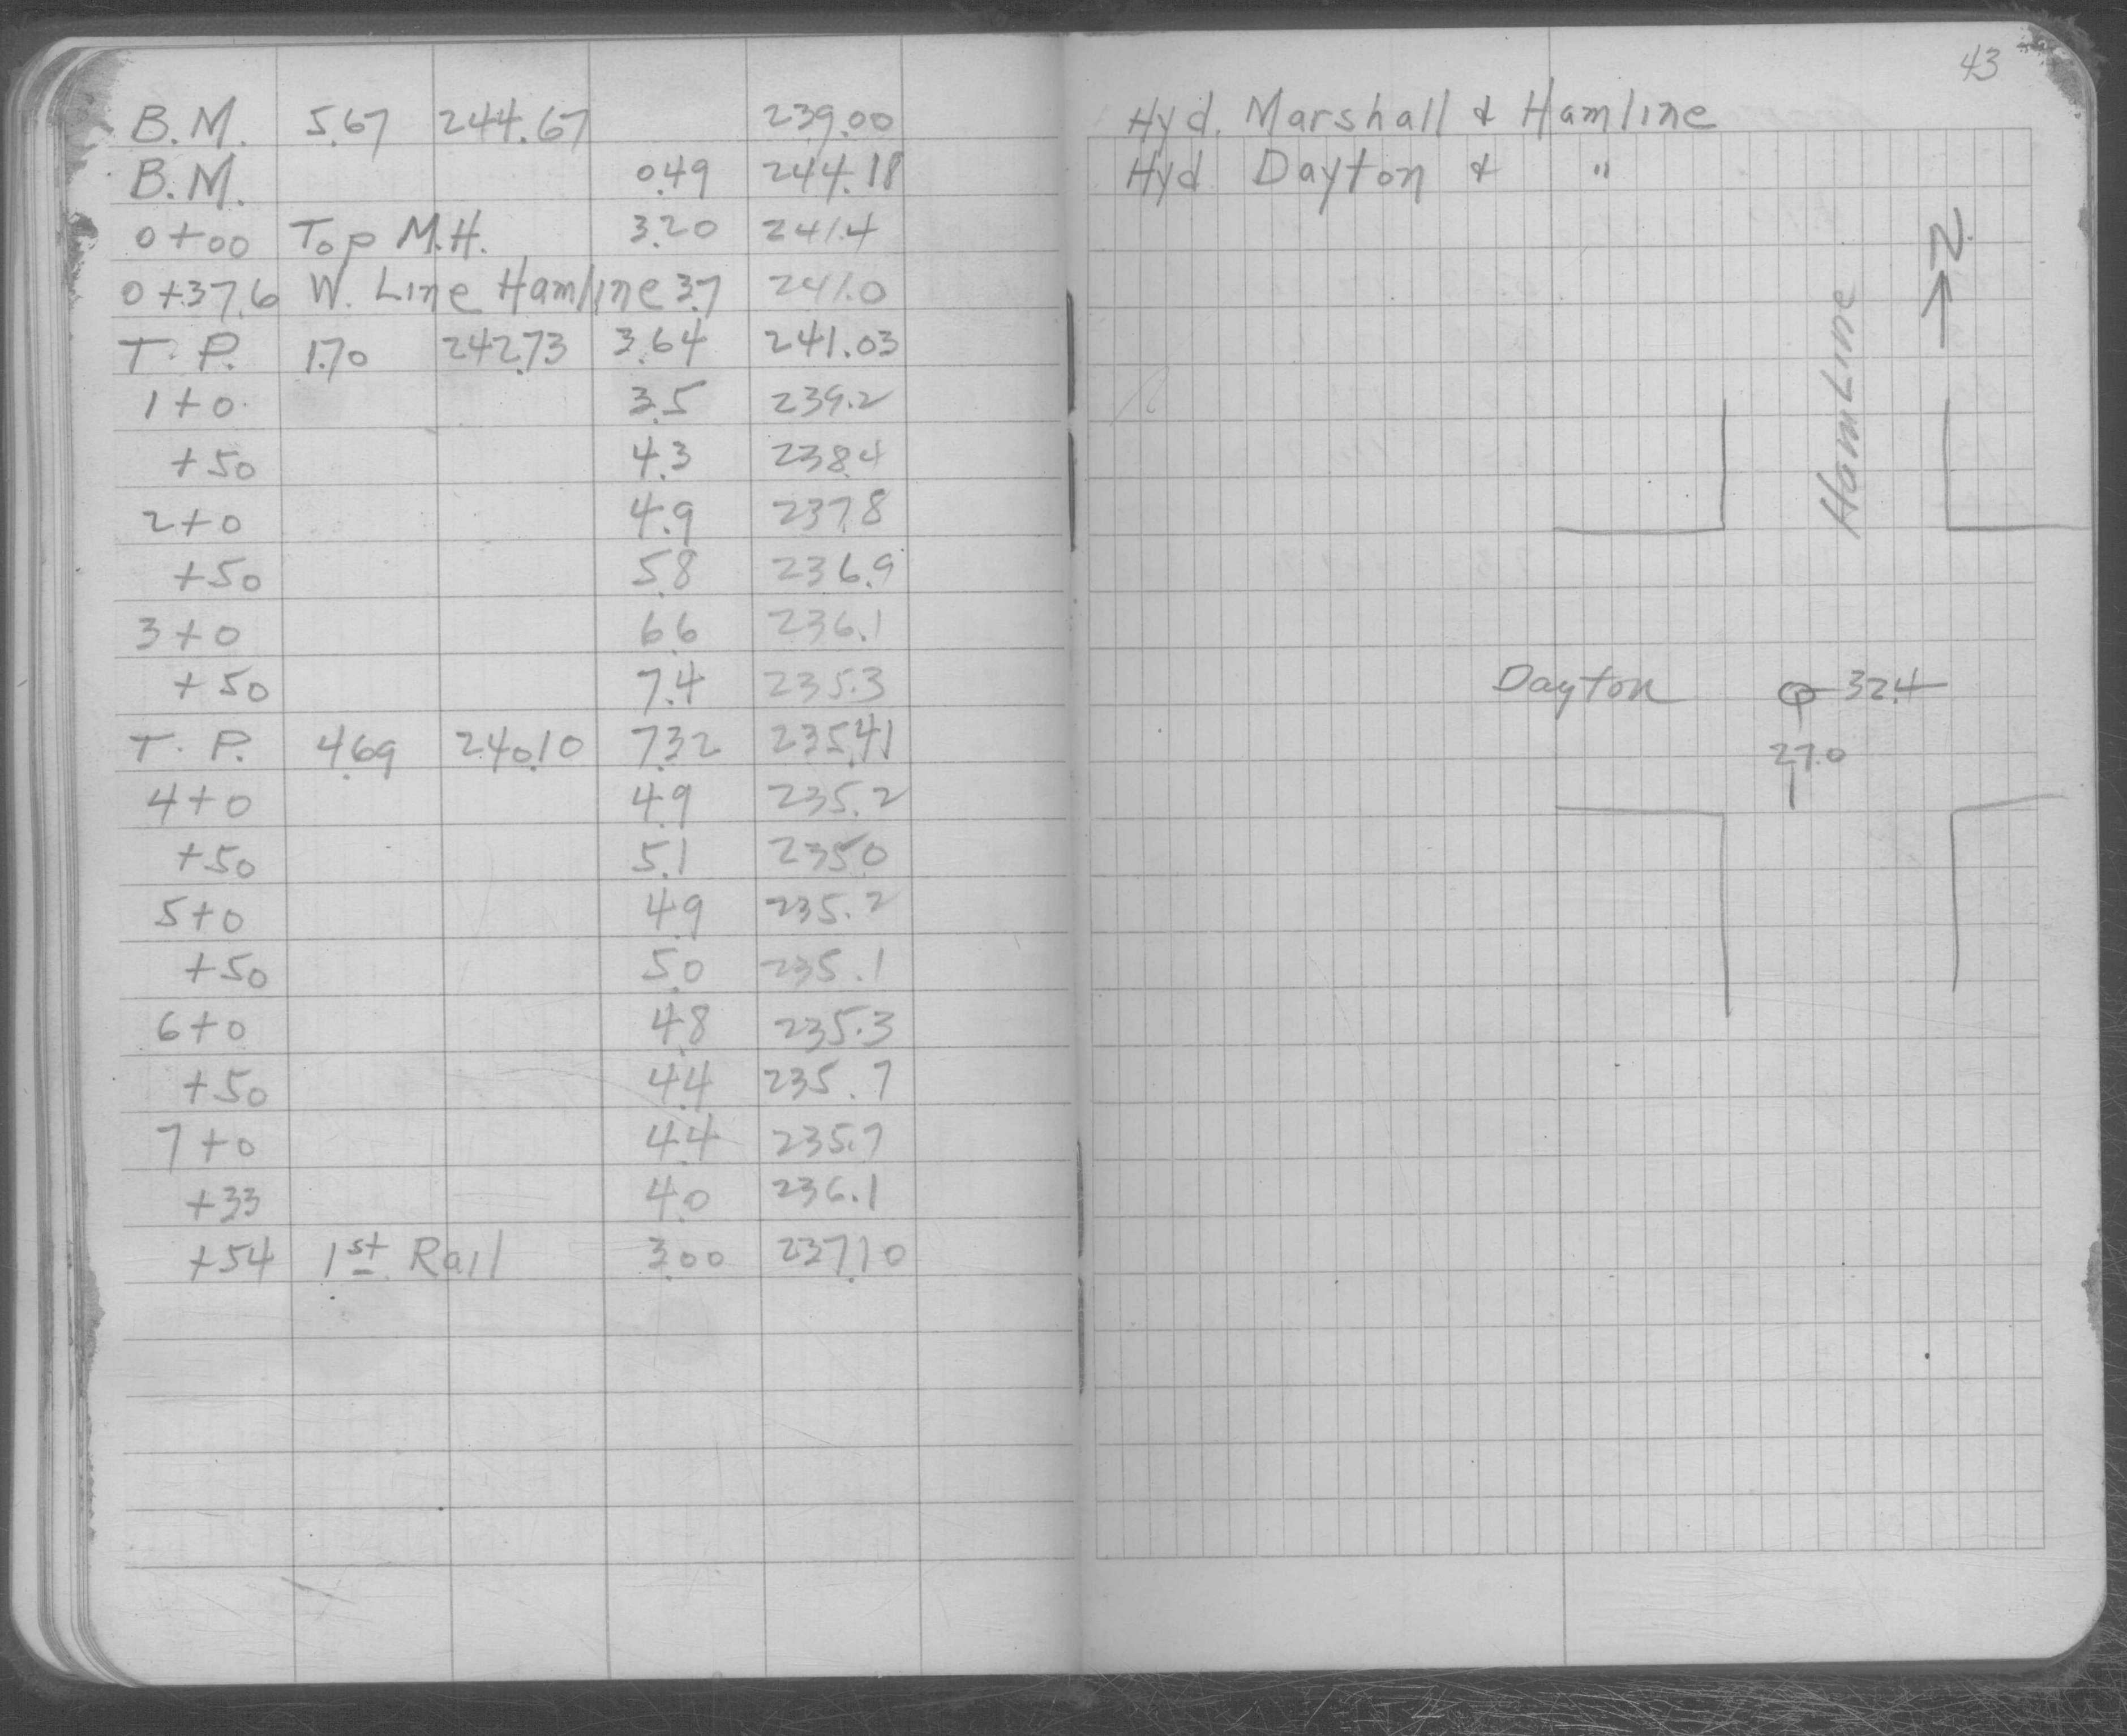 B.M. 5.67 244.67 239.00
B.M. 0.49 244.18
0+00 Top M.H. 3.20 241.4
0+37.6 W. Line Hamline 3.7 241.0
T.P. 1.70 242.73 3.64 241.03
1+0 3.5 239.2
+50 4.3 238.4
2+0 4.9 237.8
+50 5.8 236.9
3+0 6.6 236.1
+50 7.4 235.3
T.P. 4.69 240.10 7.32 235.41
4+0 4.9 235.2
+50 5.1 235.0
5+0 4.9 235.2
+50 5.0 235.1
6+0 4.8 235.3
+50 4.4 235.7
7+0 4.4 235.7
+33 4.0 236.1
+54 1st Rail 3.00 237.10
43
Hyd. Marshall & Hamline
Hyd Dayton & "
N.
HamLine
Dayton 32.4
27.0